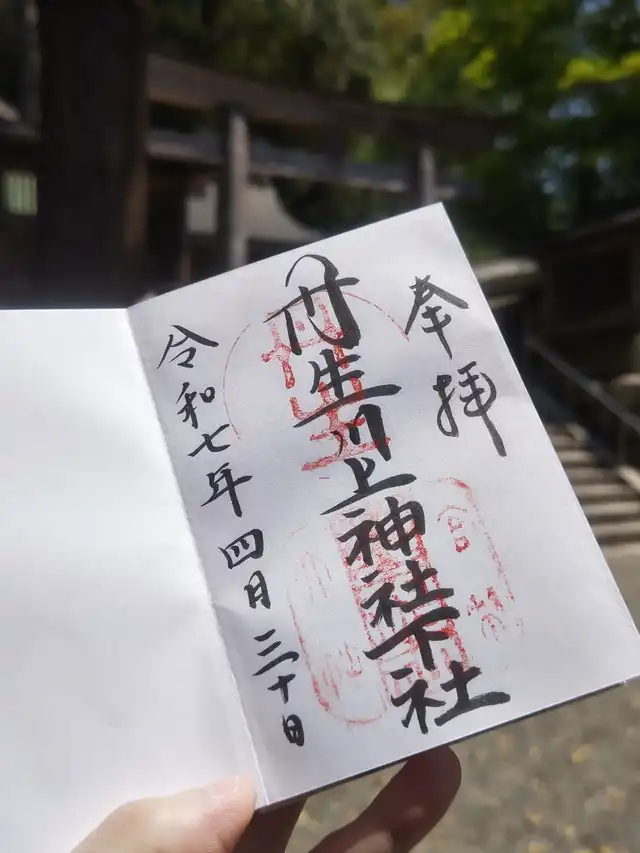 奉拝
丹生川上神社下社
令和七年四月三十日